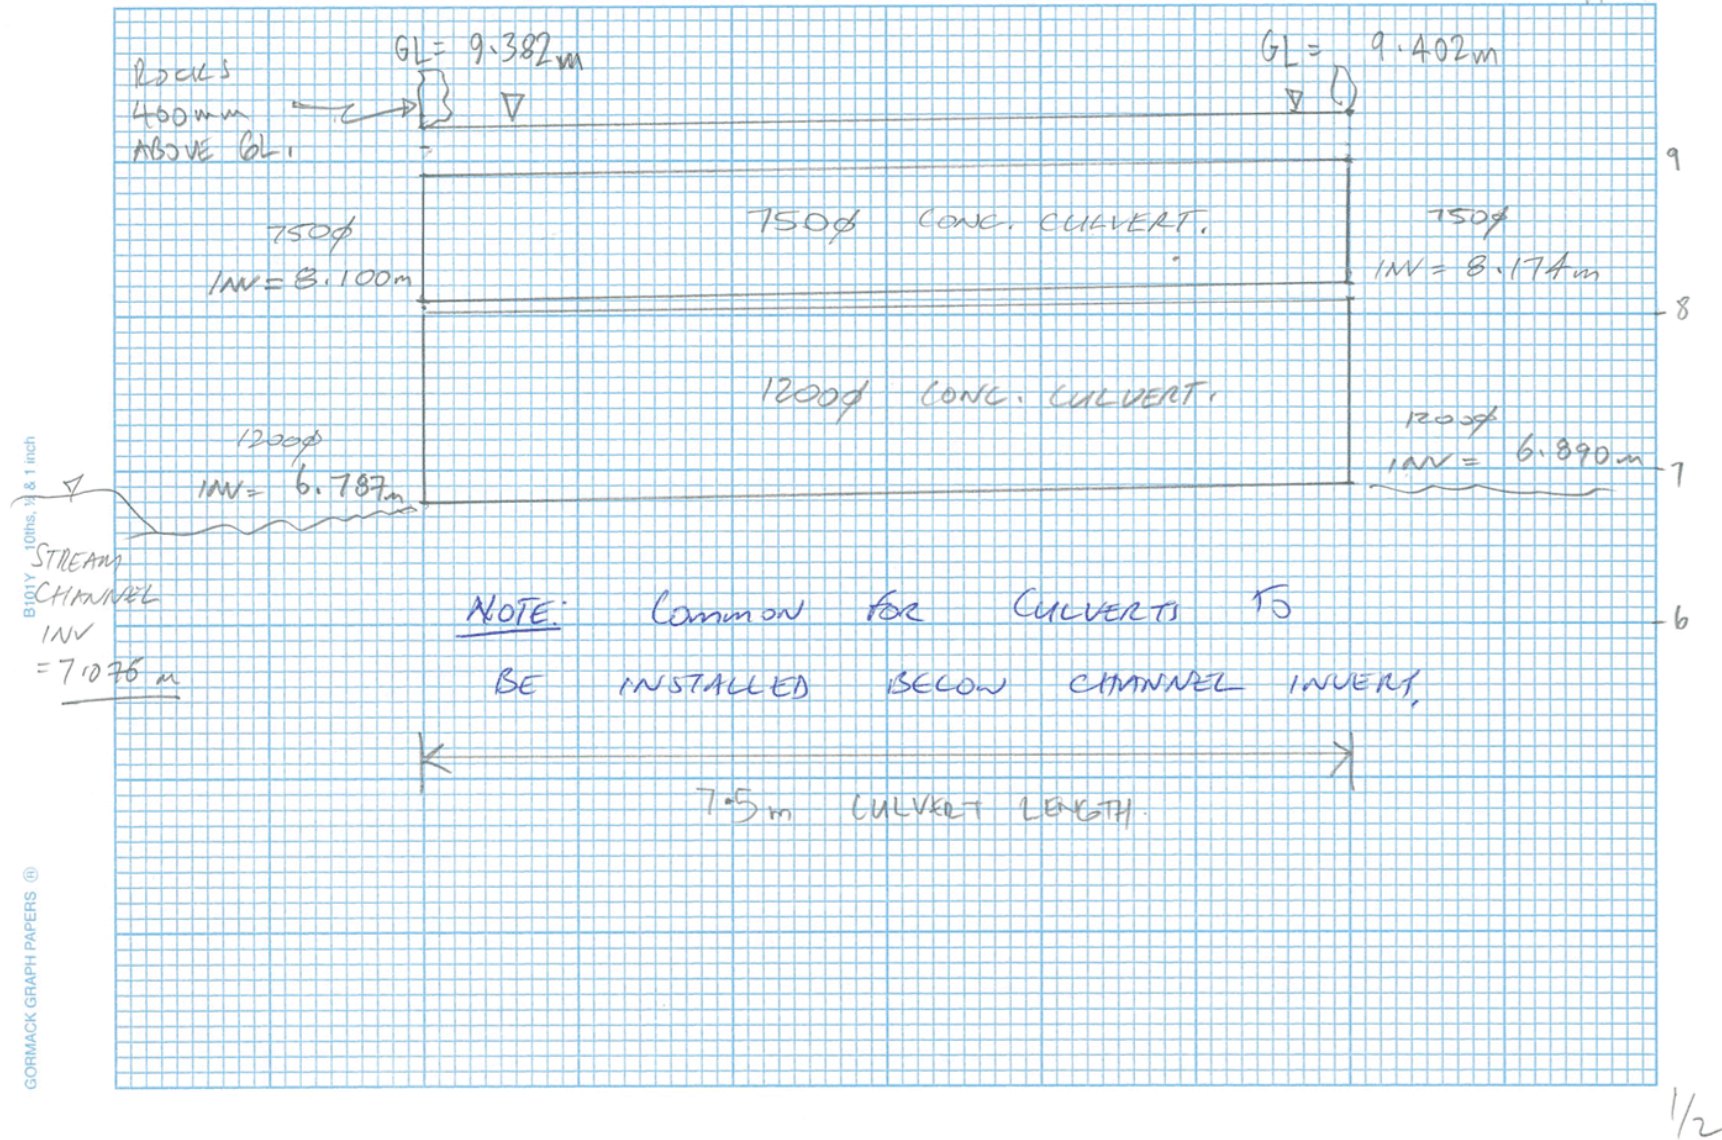 GL = 9.382m
GL = 9.402m
ROCKS
400mm
ABOVE GL.
9
750ø CONC. CULVERT.
750ø
INV = 8.100m
750ø
INV = 8.174m
8
1200ø CONC. CULVERT.
1200ø
INV = 6.787m
1200ø
INV = 6.890m
7
STREAM
CHANNEL
INV
= 7.076 m
NOTE: Common FOR CULVERTS TO
BE INSTALLED BELOW CHANNEL INVERT.
6
7.5m CULVERT LENGTH.
B101Y 10ths, ½ & 1 inch
GORMACK GRAPH PAPERS ®
1/2